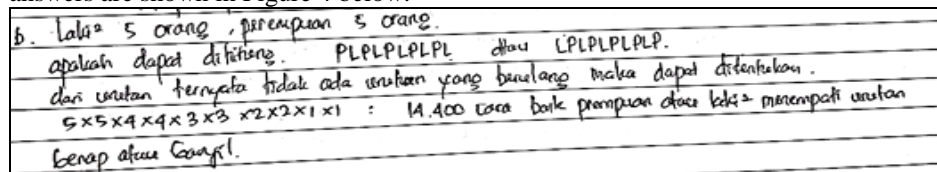 answers are shown in Figure 4 below:
b. Laki² 5 orang, perempuan 5 orang.
apakah dapat dihitung. PLPLPLPLPL atau LPLPLPLPLP.
dari urutan ternyata tidak ada urutan yang berulang maka dapat ditentukan.
5×5×4×4×3×3×2×2×1×1 : 14.400 cara baik prempuan atau laki² menempati urutan
Genap atau Ganjil.